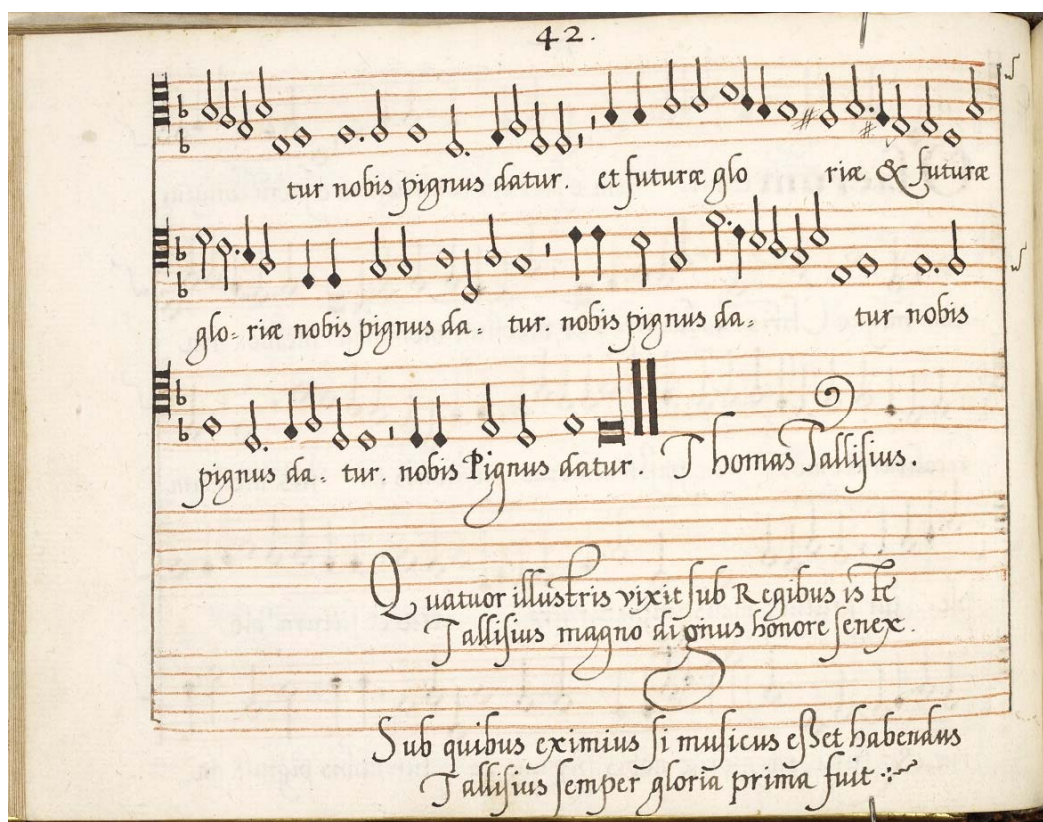 42.
tur nobis pignus datur. et futuræ glo riæ & futuræ
glo= riæ nobis pignus da= tur. nobis pignus da= tur nobis
pignus da= tur. nobis Pignus datur. Thomas Tallisius.
Quatuor illustris vixit sub Regibus iste
Tallisius magno dignus honore senex.
Sub quibus eximius si musicus esset habendus
Tallisius semper gloria prima fuit